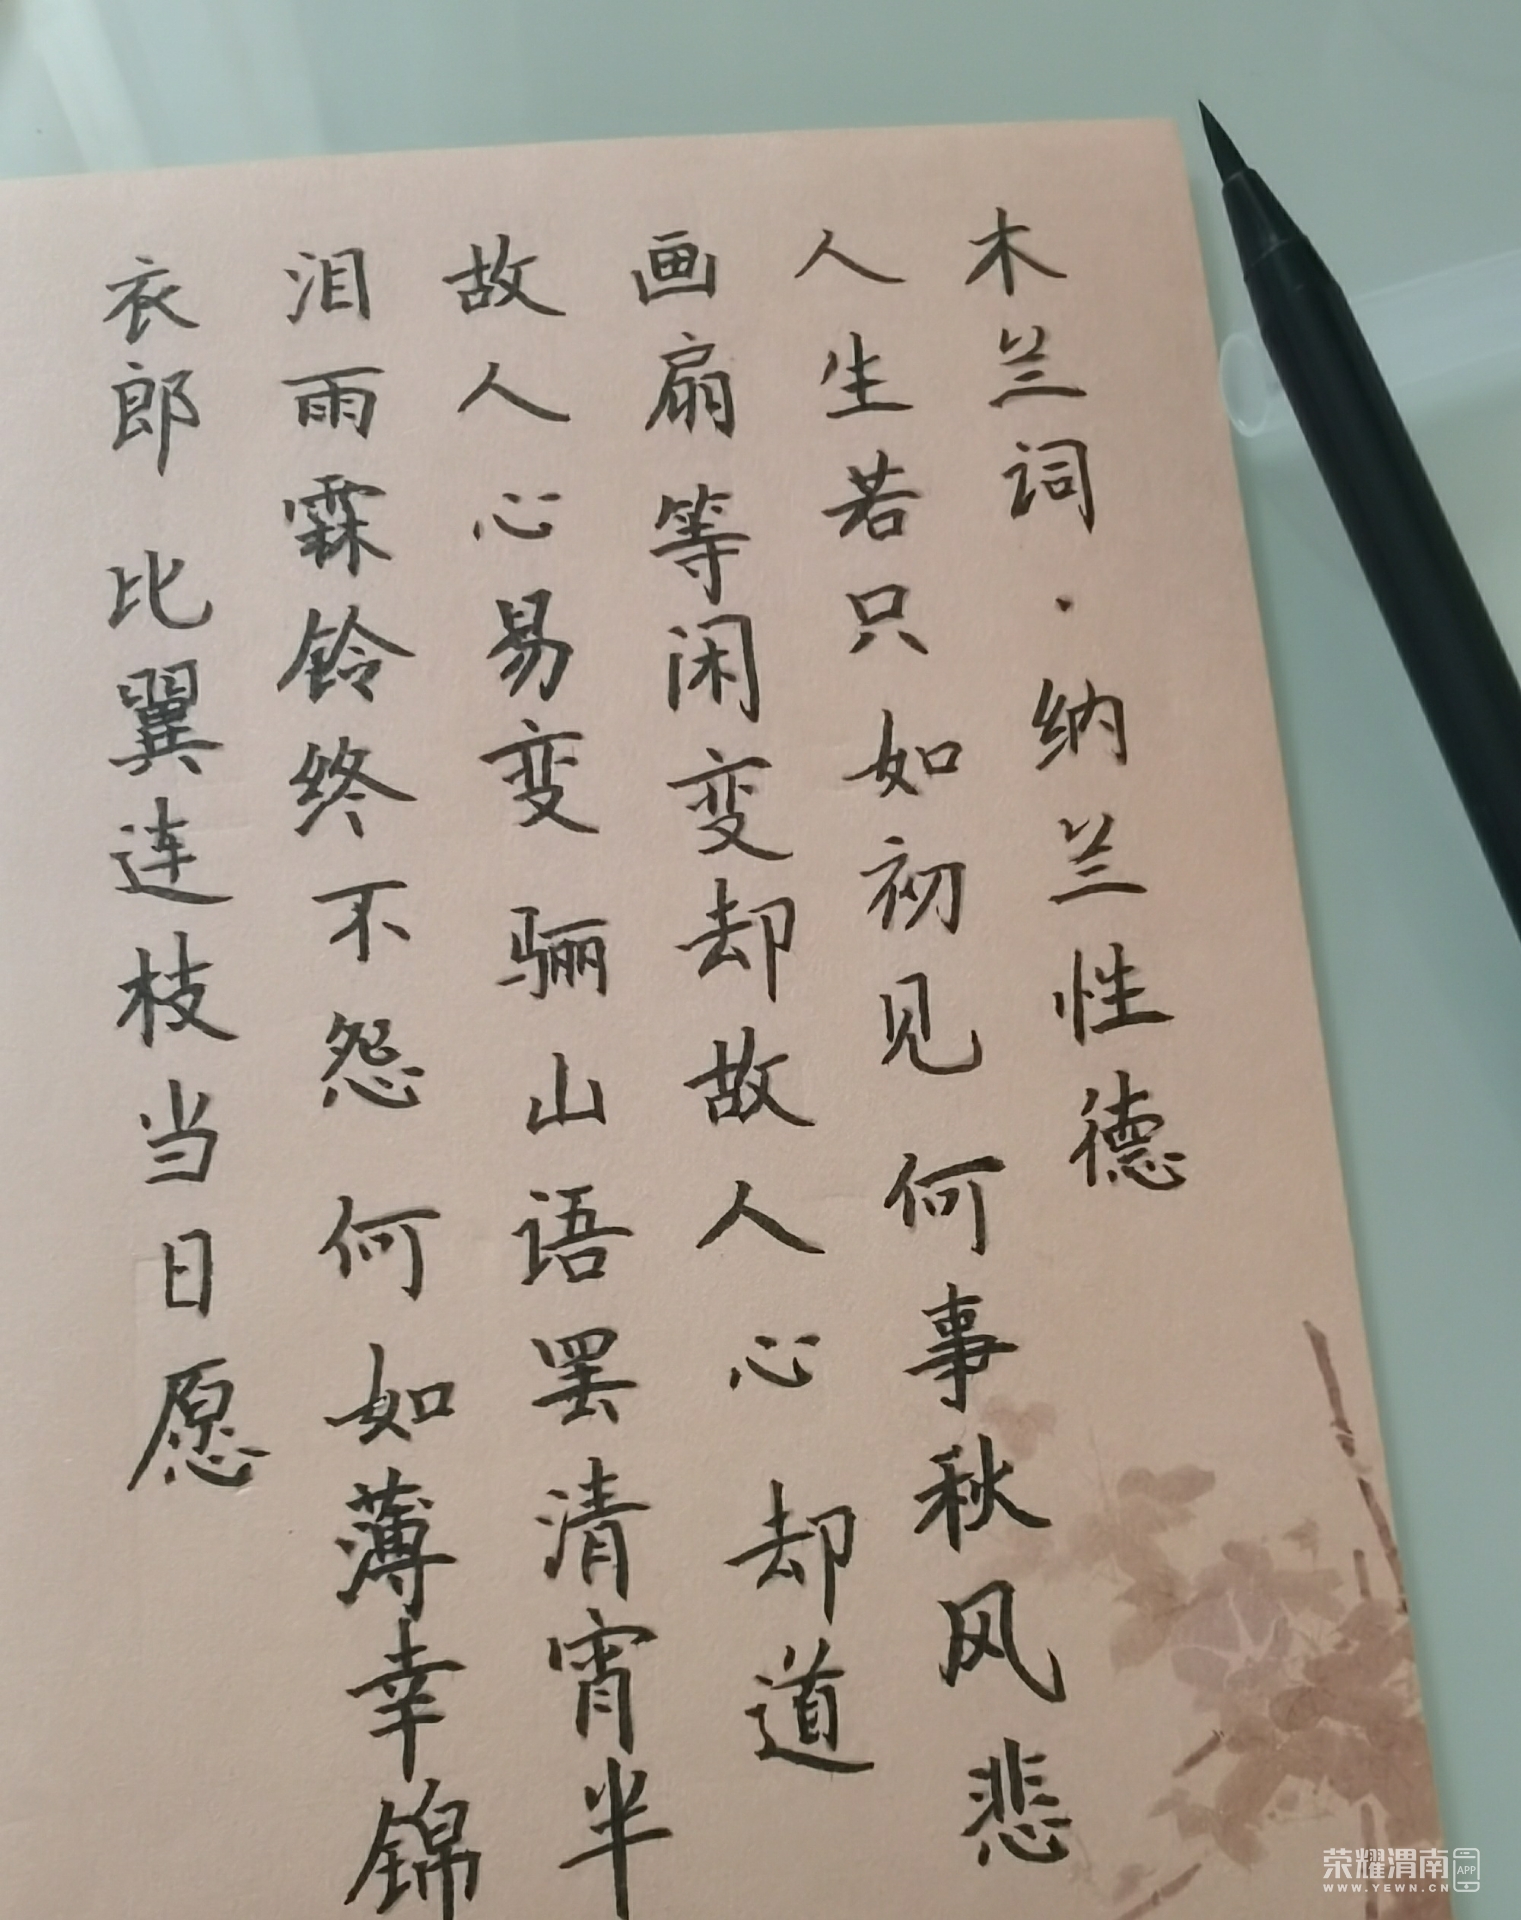 木兰词·纳兰性德
人生若只如初见 何事秋风悲
画扇 等闲变却故人心 却道
故人心易变 骊山语罢清宵半
泪雨霖铃终不怨 何如薄幸锦
衣郎 比翼连枝当日愿
荣耀渭南 APP
WWW.YEWN.CN